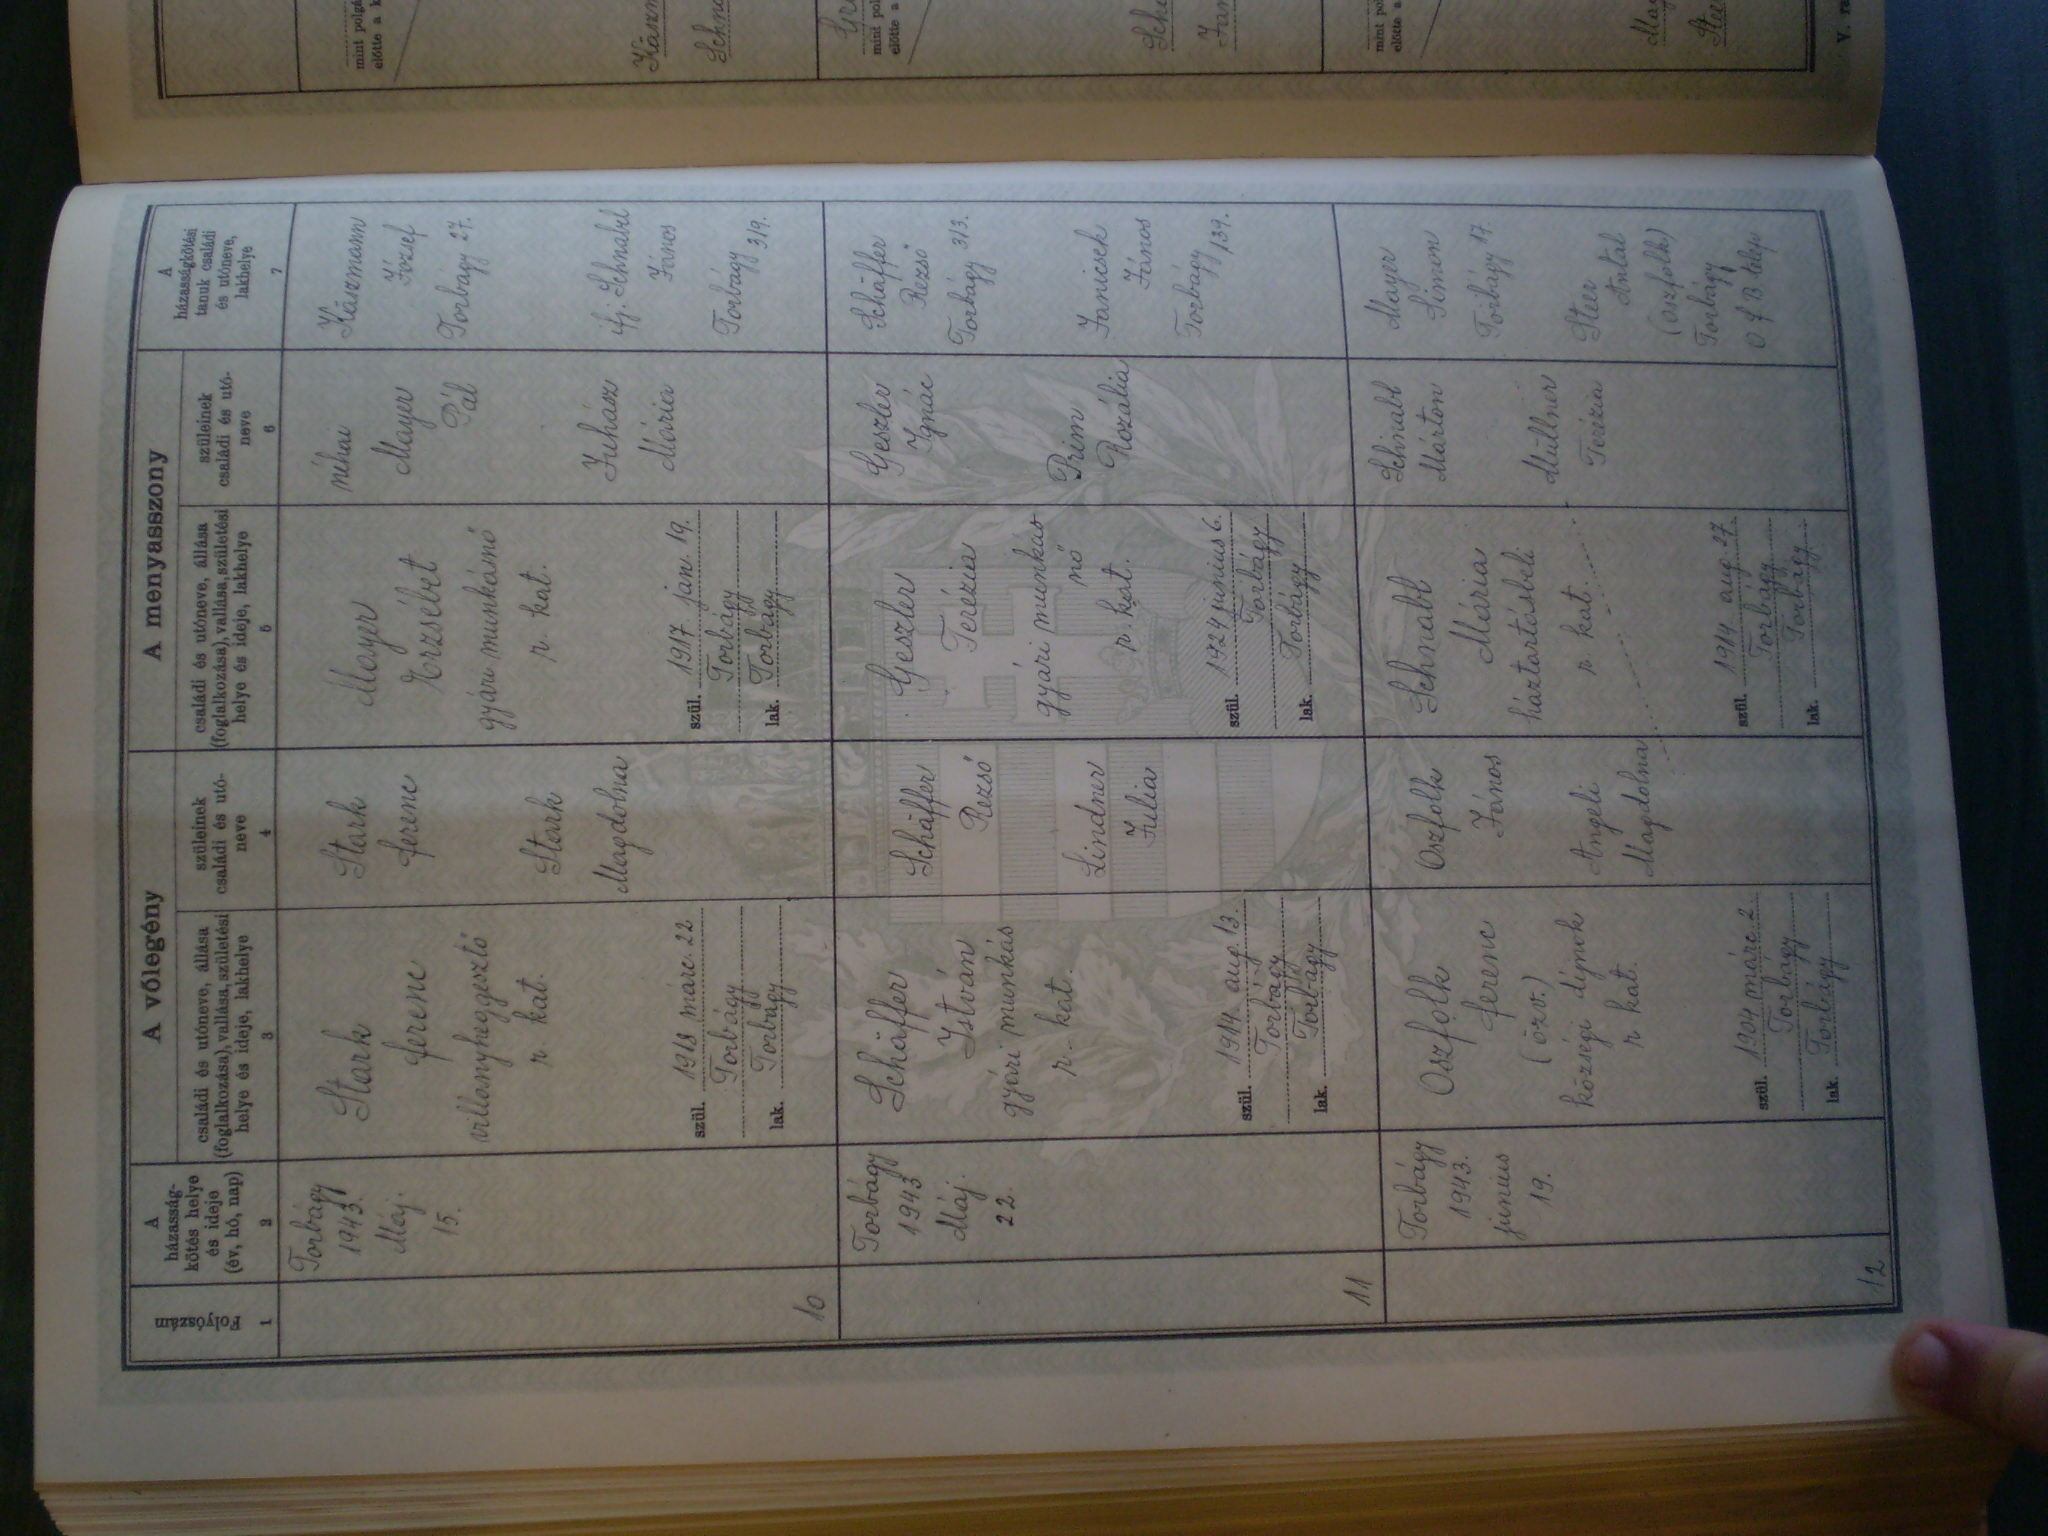 A vőlegény
A menyasszony
Folyószám
1
A
házasság-
kötés helye
és ideje
(év, hó, nap)
2
családi és utóneve, állása
(foglalkozása), vallása, születési
helye és ideje, lakhelye
3
szüleinek
családi és utó-
neve
4
családi és utóneve, állása
(foglalkozása), vallása, születési
helye és ideje, lakhelye
5
szüleinek
családi és utó-
neve
6
A
házasságkötési
tanuk családi
és utóneve,
lakhelye
7
10
Torbágy
1943.
Máj.
15.
Stark
Ferenc
villanyhegesztő
r. kat.
szül. 1918 márc. 22
Torbágy
lak. Torbágy
Stark
Ferenc
Stark
Magdolna
Mayer
Erzsébet
gyári munkásnő
r. kat.
szül. 1917 jan. 19.
Torbágy
lak. Torbágy
néhai
Mayer
Pál
Juhász
Mária
Kászmann
József
Torbágy 27.
ifj. Schnabel
János
Torbágy 319.
11
Torbágy
1943
Máj.
22.
Schäffer
István
gyári munkás
r. kat.
szül. 1914. aug. 13.
Torbágy
lak. Torbágy
Schäffer
Rezső
Lindner
Julia
Geszler
Terézia
gyári munkás
nő
r. kat.
szül. 1924 június 6.
Torbágy
lak. Torbágy
Geszler
Ignác
Prim
Rozália
Schäffer
Rezső
Torbágy 313.
Janicsek
János
Torbágy 139.
12
Torbágy
1943.
június
19.
Oszfolk
Ferenc
(özv.)
községi díjnok
r. kat.
szül. 1904 márc. 2
Torbágy
lak. Torbágy
Oszfolk
János
Angeli
Magdolna
Schnabl
Mária
háztartásbeli
r. kat.
szül. 1914 aug. 27.
Torbágy
lak. Torbágy
Schnabl
Márton
Müllner
Terézia
Mayer
Simon
Torbágy 17.
Steer
Antal
(Oszfolk)
Torbágy
telep
mint polgá
előtte a k
Kászm
Schna
mint pol
előtte a
Sche
Jan
mint pol
előtte a
May
Stee
V. ra